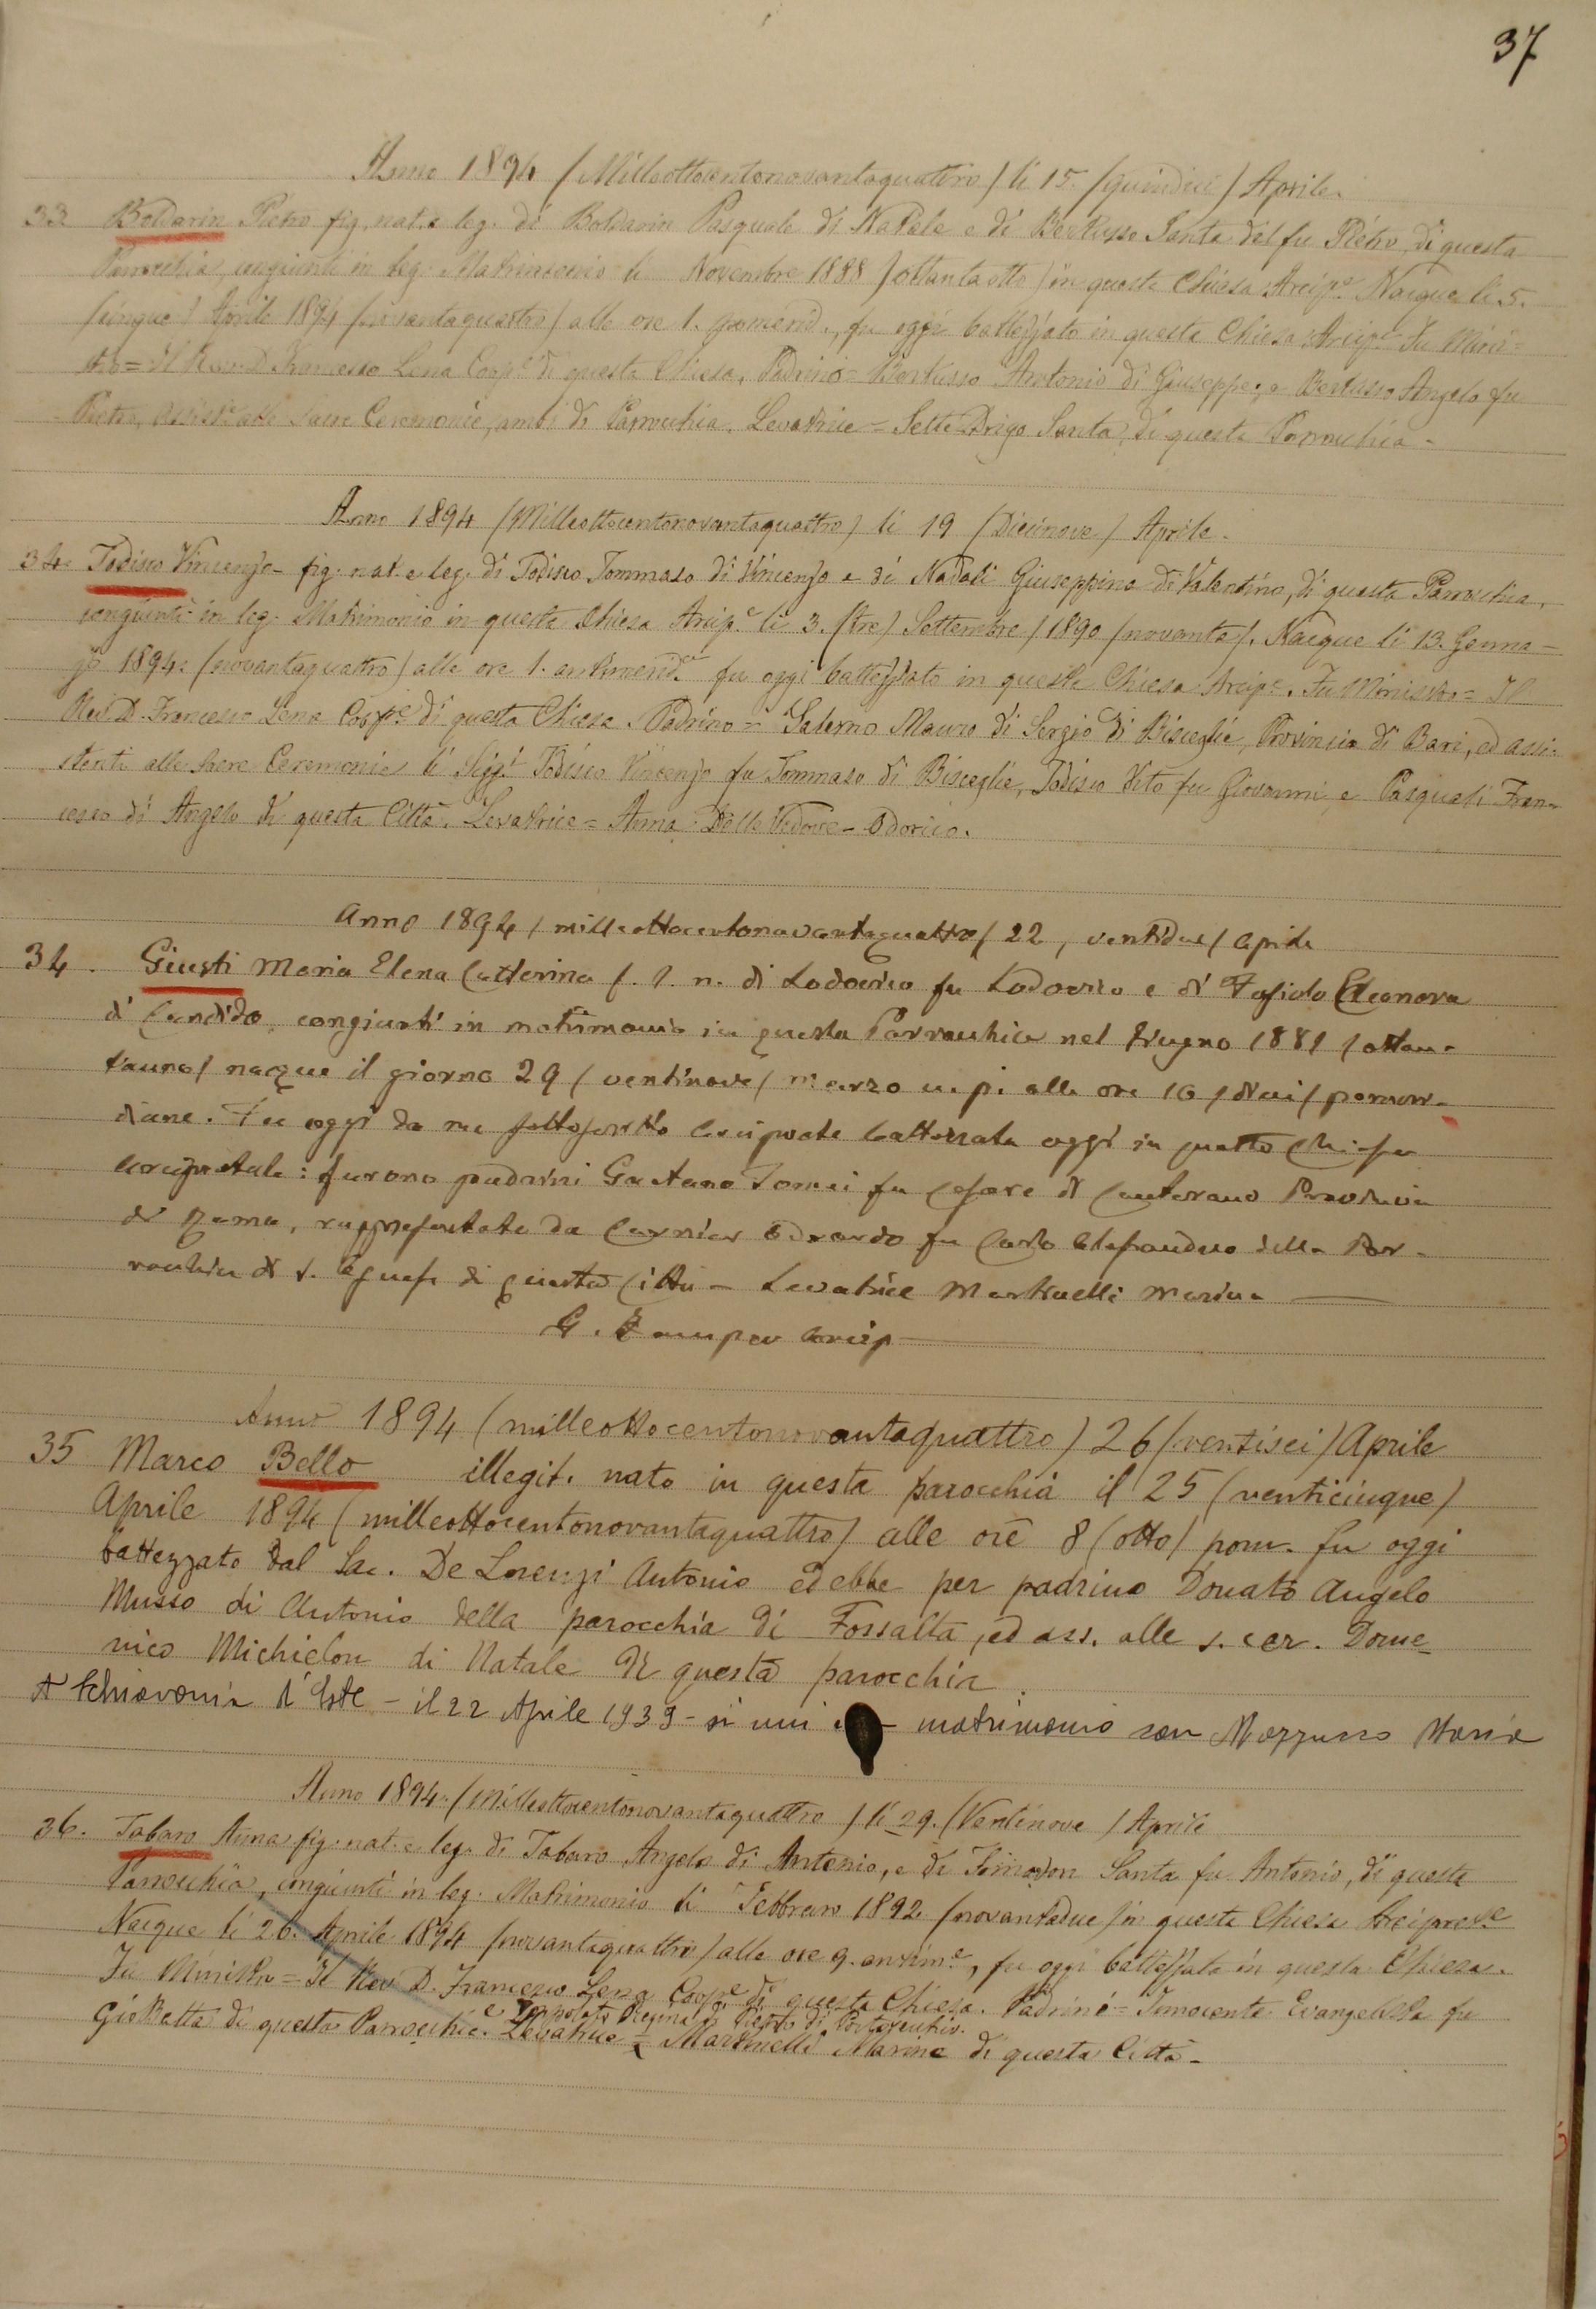 37
Anno 1894 / Milleottocentonovantaquattro / li 15. / quindici / Aprile.
33 Boldarin Pietro fig. nat. e leg. di Boldarin Pasquale di Natale e di Bertusso Santa del fu Pietro, di questa
Parrocchia, congiunti in leg. Matrimonio li Novembre 1888 / ottantaotto / in questa Chiesa Arcip.e Nacque li 5.
/ cinque / Aprile 1894 / novantaquattro / alle ore 1. pomerid., fu oggi battezzato in questa Chiesa Arcip.e Fu Mini=
stro = Il Rev. D. Francesco Lena Coop.e di questa Chiesa. Padrino = Bertusso Antonio di Giuseppe, e Bertusso Angelo fu
Pietro, assist. alle Sacre Ceremonie, ambi di Parrocchia. Levatrice = Sette Drigo Santa, di questa Parrocchia.
Anno 1894 / Milleottocentonovantaquattro / li 19 / Diecinove / Aprile.
34. Todisco Vincenzo - fig. nat. e leg. di Todisco Tommaso di Vincenzo e di Nadali Giuseppina di Valentino, di questa Parrocchia,
congiunti in leg. Matrimonio in questa Chiesa Arcip.e li 3. / tre / Settembre / 1890 / novanta /. Nacque li 13. Genna-
jo 1894. / novantaquattro / alle ore 1. antimerid.e fu oggi battezzato in questa Chiesa Arcip.e. Fu Ministro = Il
Rev. D. Francesco Lena Coop.e di questa Chiesa. Padrino = Salerno Mauro di Sergio di Bisceglie, Provincia di Bari, ed assi-
stenti alle Sacre Ceremonie li Sigg.i Todisco Vincenzo fu Tommaso di Bisceglie, Todisco Vito fu Giovanni, e Pasquali Fran-
cesco di Angelo di questa Città. Levatrice = Anna Dalle Vedove - Odorico.
Anno 1894 / milleottocentonovantaquattro / 22, ventidue / Aprile
34. Giusti Maria Elena Catterina f. l. n. di Lodovico fu Lodovico e di Fasiolo Eleonora
di Candido, congiunti in matrimonio in questa Parrocchia nel Giugno 1881 / ottan-
tauno / nacque il giorno 29 / ventinove / marzo u. p. alle ore 10 / dieci / pomeri-
diane. Fu oggi da me sottoscritto Arciprete battezzata oggi in questa Chiesa
Arcipretale: furono padrini Gaetano Tomei fu Cesare di Canterano Provincia
di Roma, rappresentato da Carnier Edoardo fu Carlo Alessandro della Par-
rocchia di S. Agnese di questa Città - Levatrice Martinelli Marina
G. Arcip
Anno 1894 (milleottocentonovantaquattro) 26 (ventisei) Aprile
35 Marco Bello illegit. nato in questa parocchia il 25 (venticinque)
Aprile 1894 (milleottocentonovantaquattro) alle ore 8 (otto) pom. fu oggi
battezzato dal Sac. De Lorenzi Antonio ed ebbe per padrino Donato Angelo
Musso di Antonio della parocchia di Fossalta, ed ass. alle s. cer. Dome-
nico Michielon di Natale di questa parocchia.
A Schiavonia d'Este - il 22 Aprile 1939 - si unì - matrimonio con Mazzucco Maria
Anno 1894. / Milleottocentonovantaquattro / li 29. / Ventinove / Aprile
36. Tabaro Anna fig. nat. e leg. di Tabaro Angelo di Antonio, e di Simadon Santa fu Antonio, di questa
Parrocchia, congiunti in leg. Matrimonio li Febbraro 1892 / novantadue / in questa Chiesa Arcipret.e
Nacque li 26. Aprile 1894 / novantaquattro / alle ore 9. antim.e, fu oggi battezzata in questa Chiesa.
Fu Ministro = Il Rev. D. Francesco Lena Coop.e di questa Chiesa. Padrino = Innocente Evangelista fu
e Ippolato Regina di Pietro di Portovecchio.
GioBatta di questa Parrocchia. Levatrice = Martinelli Marina di questa Città.